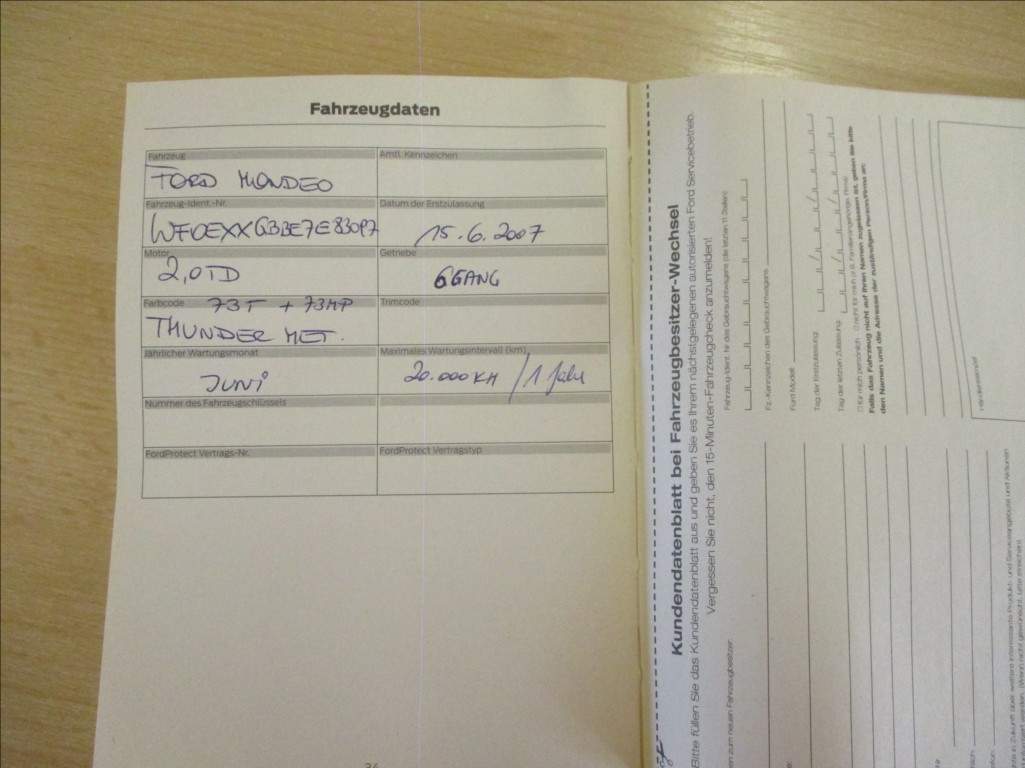 Fahrzeugdaten
Fahrzeug
Amtl. Kennzeichen
FORD MONDEO
Fahrzeug-Ident.-Nr.
Datum der Erstzulassung
WF0EXXGBBE7E83097
15.6.2007
Motor
Getriebe
2,0TD
6GANG
Farbcode 73T + 73MP
Trimcode
THUNDER MET.
Jährlicher Wartungsmonat
Maximales Wartungsintervall (km)
JUNi
20.000KM / 1 Jahr
Nummer des Fahrzeugschlüssels
FordProtect Vertrags-Nr.
FordProtect Vertragstyp
Kundendatenblatt bei Fahrzeugbesitzer-Wechsel
Bitte füllen Sie das Kundendatenblatt aus und geben Sie es Ihrem nächstgelegenen autorisierten Ford Servicebetrieb.
Vergessen Sie nicht, den 15-Minuten-Fahrzeugcheck anzumelden!
Fahrzeug-Ident. Nr des Gebrauchtwagens (die letzten 11 Stellen)
Fz.-Kennzeichen des Gebrauchtwagens
Ford Modell
Tag der Erstzulassung
Tag der letzten Zulassung
Falls das Fahrzeug nicht auf Ihren Namen zugelassen ist, geben Sie bitte
den Namen und die Adresse der zuständigen Person/Firma an:
en zum neuen Fahrzeugbesitzer: